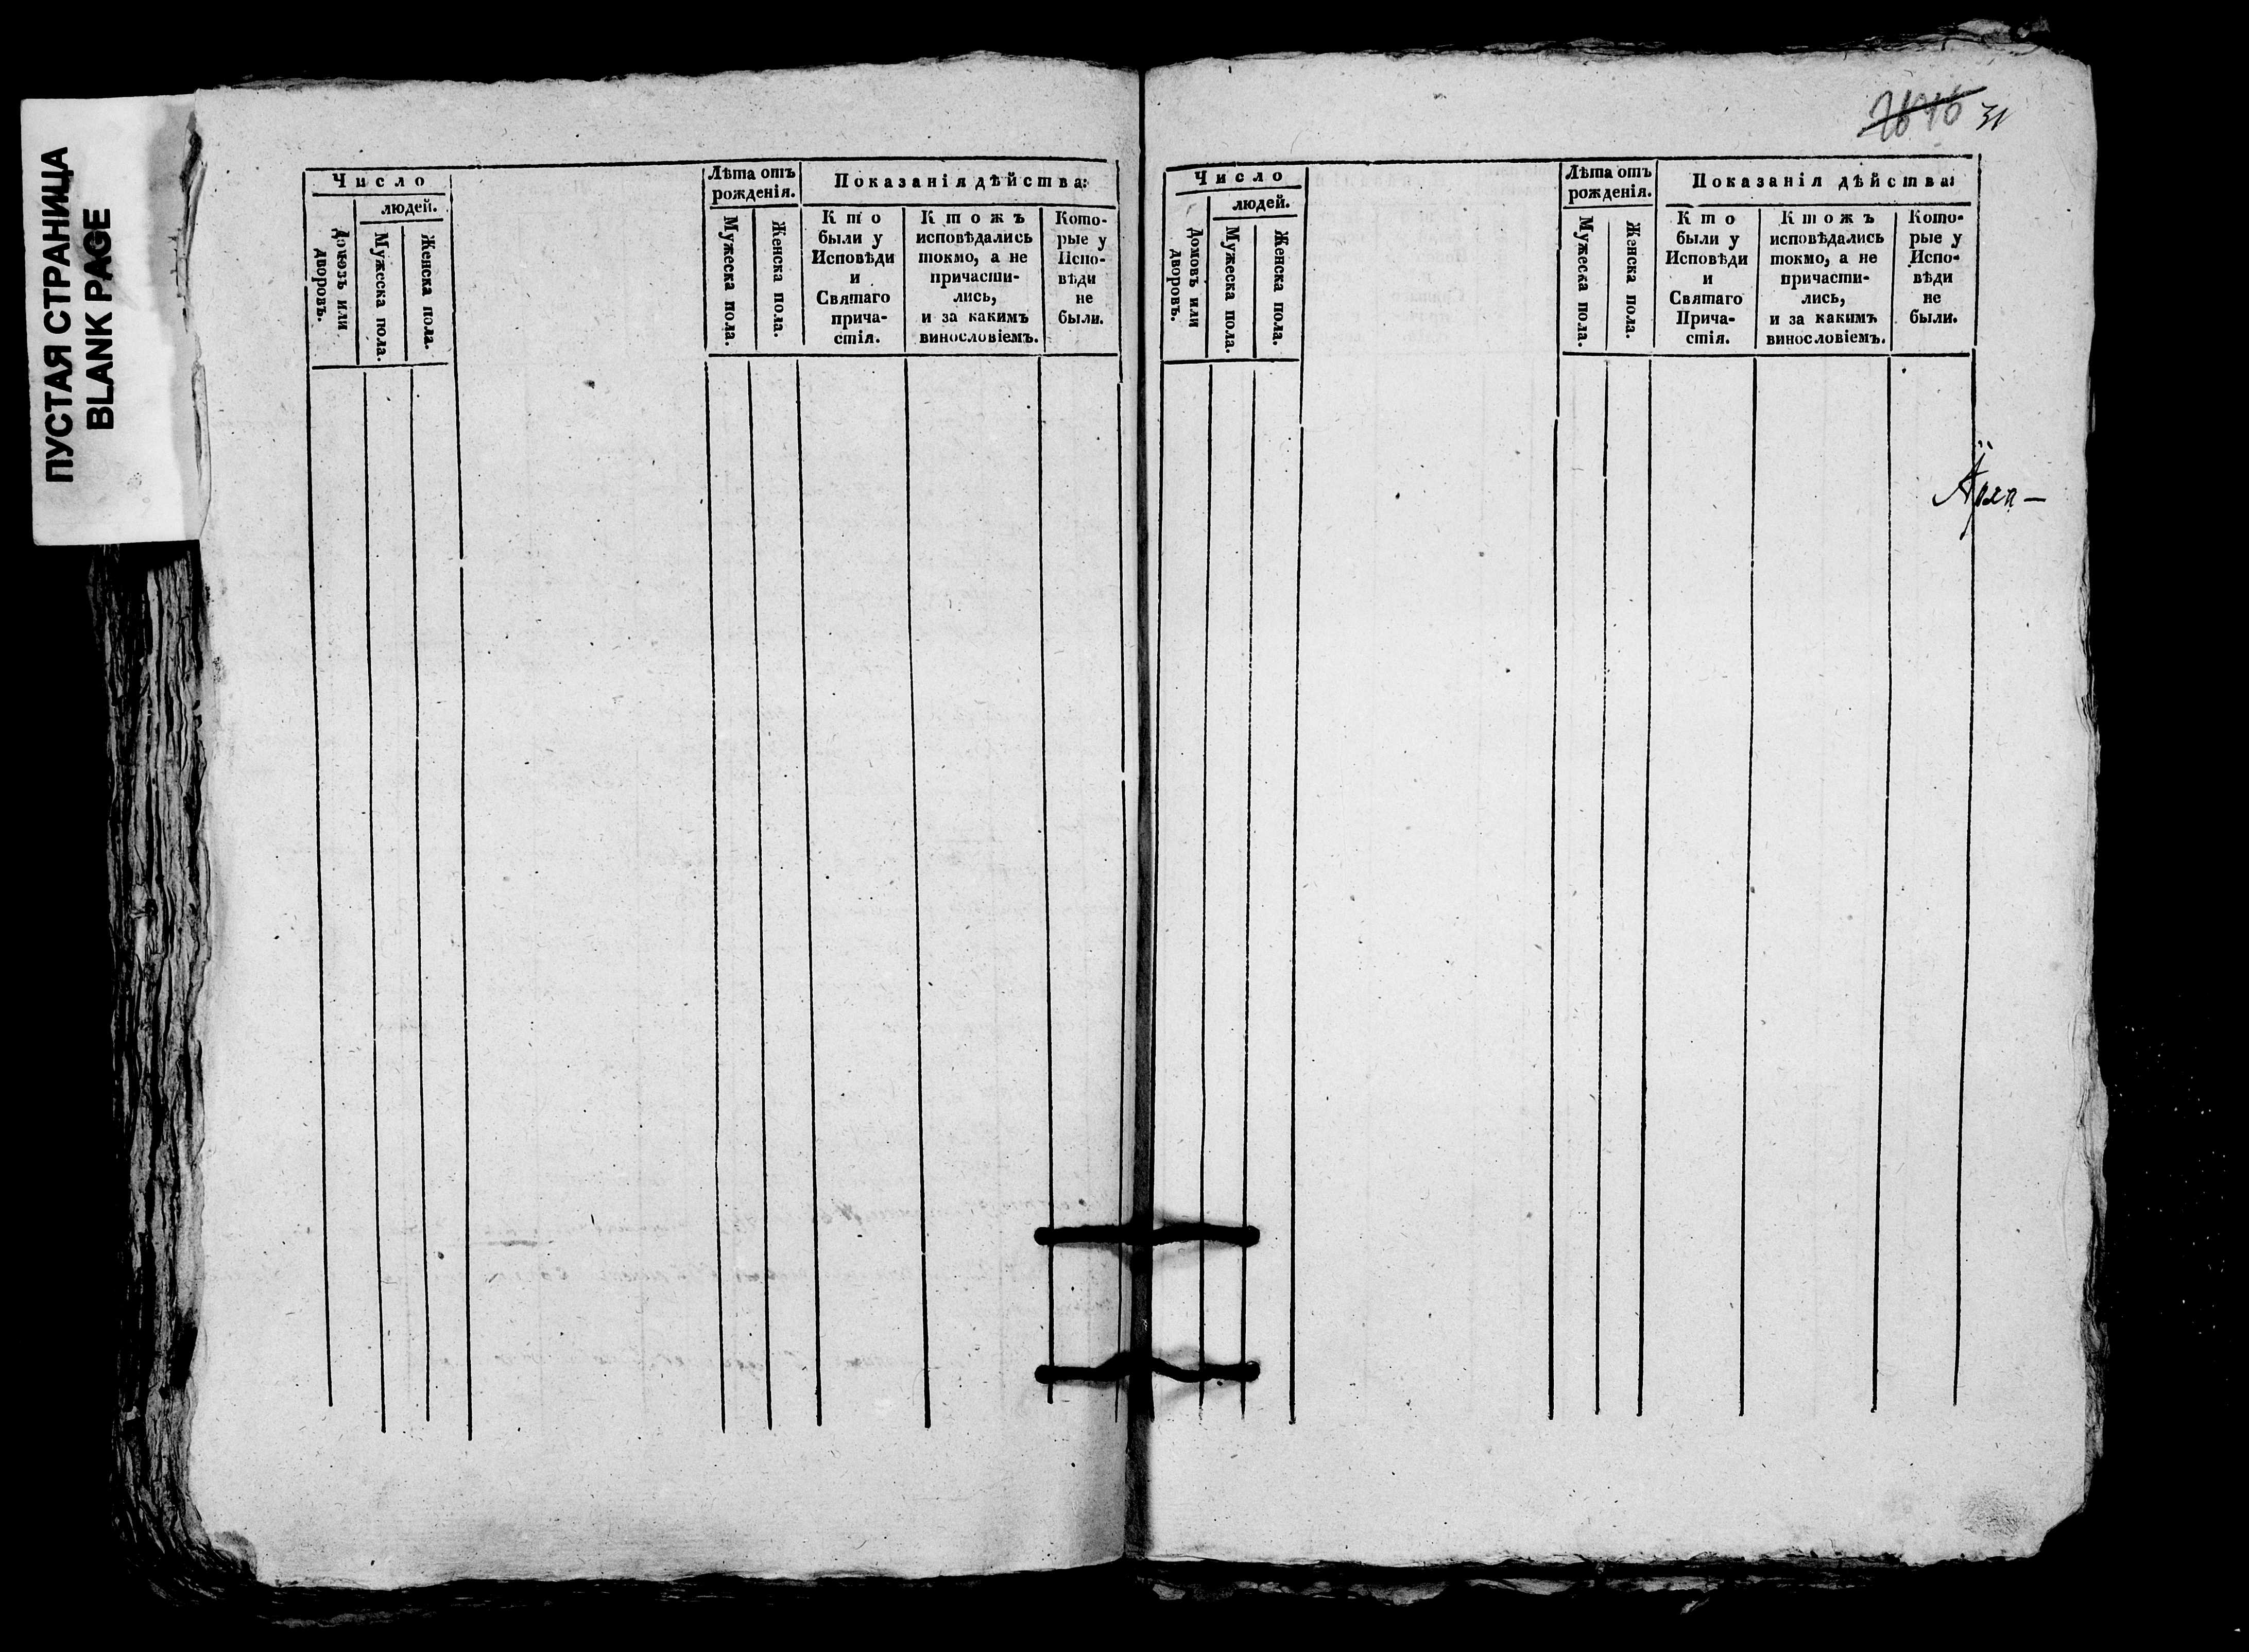 ПУСТАЯ СТРАНИЦА
BLANK PAGE
Число
людей.
Домовъ или
дворовъ.
Мужеска пола.
Женска пола.
Лѣта отъ
рожденія.
Мужеска пола.
Женска пола.
Показанія дѣйства:
Кто
были у
Исповѣди
и
Святаго
прича-
стія.
Ктожъ
исповѣдались
токмо, а не
причасти-
лись,
и за какимъ
винословіемъ.
Кото-
рые у
Испо-
вѣди
не
были.
31
Число
людей.
Домовъ или
дворовъ.
Мужеска пола.
Женска пола.
Лѣта отъ
рожденія.
Мужеска пола.
Женска пола.
Показанія дѣйства:
Кто
были у
Исповѣди
и
Святаго
Прича-
стія.
Ктожъ
исповѣдались
токмо, а не
причасти-
лись,
и за какимъ
винословіемъ.
Кото-
рые у
Испо-
вѣди
не
были.